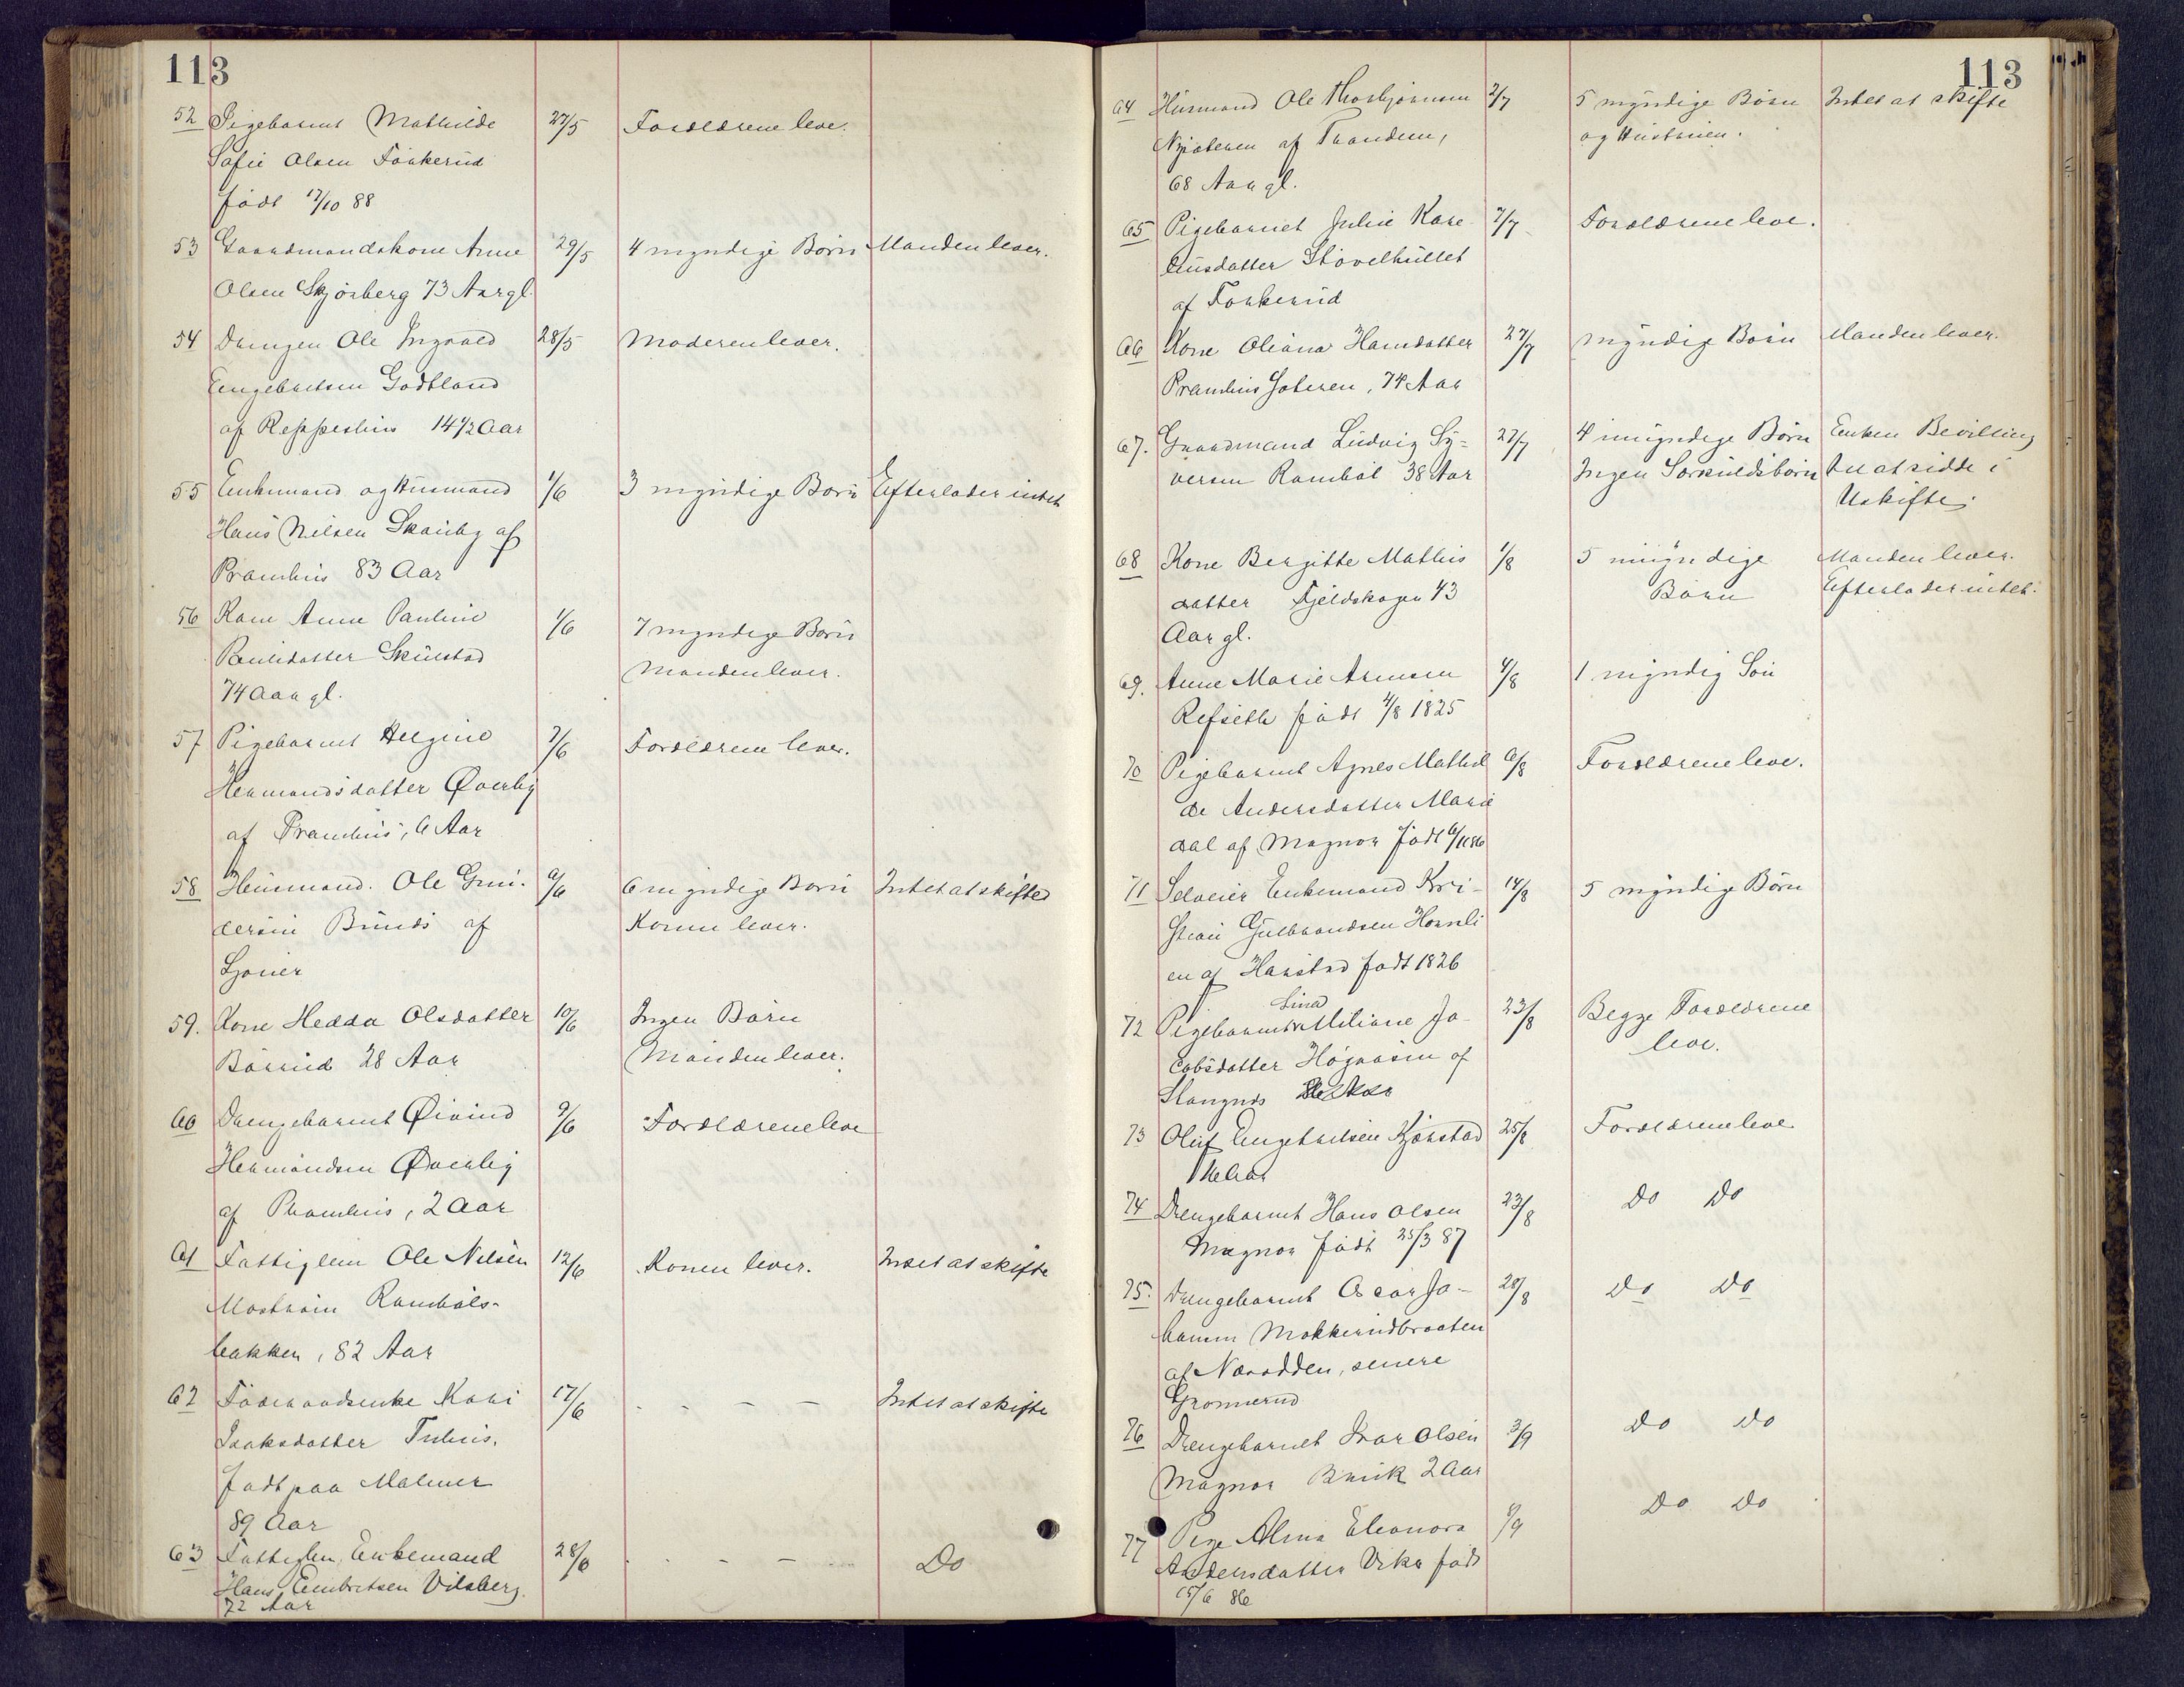 113
52 Pigebarnet Mathilde 27/5 Forældrene leve.
Sofie Olsen Forkerud
født 17/10 88
53 Gaardmandskone Anne 29/5 4 myndige Børn Manden lever.
Olsen Skjørberg 73 Aar gl.
54 Drengen Ole Ingvald 28/5 Moderen lever.
Engebretsen Godtland
af Reppeshus 14 1/2 Aar
55 Enkemand og Husmand 1/6 3 myndige Børn Efterlader intet
Hans Nilsen Skauby af
Pramhus 83 Aar
56 Kone Anne Pauline 1/6 7 myndige Børn
Paulsdatter Skulstad Manden lever.
74 Aar gl.
57 Pigebarnet Helgine 7/6 Forældrene lever.
Hermandsdatter Øverby
af Pramhus, 6 Aar
58 Husmand Ole Gun- 9/6 6 myndige Børn Intet at skifte
dersen Brunds af Konen lever.
59. Kone Hedda Olsdatter 10/6 Ingen Børn
Børrud 28 Aar Manden lever.
60 Drengebarnet Øivind 9/6 Forældrene leve
Hermandsen Øverby
af Pramhus, 2 Aar
61 Fattiglem Ole Nilsen 12/6 Konen lever. Intet at skifte
Mostrøm Rambøls-
bakken, 82 Aar
62 Føderaadsenke Kari 17/6 - - - - Intet at skifte
Isaksdatter Tulius.
Født paa Malmer
89 Aar
63 Fattiglem, Enkemand 28/6 - - - - Do
Hans Embretsen Vilsberg.
72 Aar
113
64 Husmand Ole Thorbjørnsen 2/7 5 myndige Børn Intet at skifte
af Trandem, og Hustruen.
68 Aar gl.
65 Pigebarnet Julie Kare- 7/7 Forældrene leve.
liusdatter Støvelhullet
af Forkerud
66 Kone Oliana Hansdatter 27/7 myndige Børn Manden lever.
Pramhus Sæteren, 74 Aar
67. Gaardmand Ludvig Sy- 27/7 4 umyndige Børn Enken Bevilling
versen Rambøl 38 Aar Ingen Særkuldsbørn til at sidde i
Uskifte.
68 Kone Bergitte Mathis 1/8 5 umyndige Manden lever.
datter Fjeldskogen 43 Børn Efterlader intet.
Aar gl.
69. Anne Marie Arnesen 4/8 1 myndig Søn
Refseth født 4/8 1825
70 Pigebarnet Agnes Mathil 6/8 Forældrene leve.
de Andersdatter Marie
dal af Magnor født 6/11 86
71 Selveier Enkemand Kri- 14/8 5 myndige Børn
stian Gulbrandsen Hornli
en af Harstad født 1826
Lina
72 Pigebarnet Miliane Ja- 23/8 Begge Forældrene
cobsdatter Høgaasen af leve.
73 Oluf Engebretsen Kjørstad 25/8 Forældrene leve
74 Drengebarnet Hans Olsen 23/8 Do Do
Magnor født 25/3 87
75. Drengebarnet Oscar Jo- 28/8 Do Do
hansen Mokkerudbraaten
af Noradden, senere
Grønnerud
76 Drengebarnet Ivar Olsen 3/9 Do Do
Magnor Bruk 2 Aar
77 Pige Alma Eleonora 8/9 Do Do
Andersdatter Vika født
15/6 86